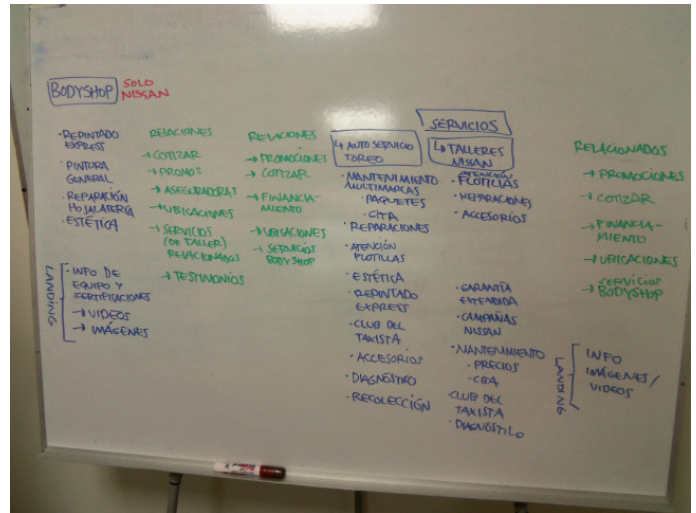 BODYSHOP
SOLO
NISSAN
· REPINTADO
EXPRESS
· PINTURA
GENERAL
· REPARACIÓN
HOJALATERÍA
· ESTÉTICA
LANDING
· INFO DE
EQUIPO Y
CERTIFICACIONES
→ VIDEOS
→ IMÁGENES
RELACIONES
→ COTIZAR
→ PROMOS
→ ASEGURADORAS
→ UBICACIONES
→ SERVICIOS
(DE TALLER)
RELACIONADOS
→ TESTIMONIOS
RELACIONES
→ PROMOCIONES
→ COTIZAR
→ FINANCIA-
MIENTO
→ UBICACIONES
→ SERVICIOS
BODYSHOP
SERVICIOS
↳ AUTO SERVICIO
TOREO
· MANTENIMIENTO
MULTIMARCAS
· PAQUETES
· CITA
· REPARACIONES
· ATENCIÓN
FLOTILLAS
· ESTÉTICA
· REPINTADO
EXPRESS
· CLUB DEL
TAXISTA
· ACCESORIOS
· DIAGNÓSTICO
· RECOLECCIÓN
↳ TALLERES
NISSAN
· ATENCIÓN
FLOTILLAS
· REPARACIONES
· ACCESORIOS
· GARANTÍA
EXTENDIDA
· CAMPAÑAS
NISSAN
· MANTENIMIENTO
· PRECIOS
· CITA
· CLUB DEL
TAXISTA
· DIAGNÓSTICO
RELACIONADOS
→ PROMOCIONES
→ COTIZAR
→ FINANCIA-
MIENTO
→ UBICACIONES
→ SERVICIOS
BODYSHOP
LANDING
INFO
IMÁGENES/
VIDEOS